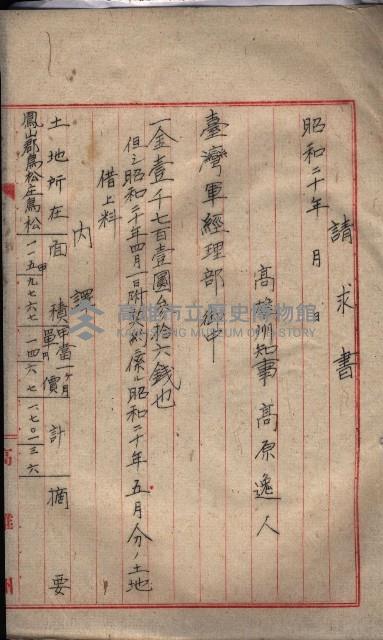 請求書
昭和二十年 月 日
高雄州知事 高原逸人
臺灣軍經理部 御中
一金壹千七百壹圓〇拾六錢也
但シ昭和二十年四月一日附契約係ル昭和二十年五月分ノ土地
借上料
內譯
土地所在 面積 甲當一ヶ月單價 計 摘要
鳳山郡鳥松庄鳥松 一一五九七六七 一四六七 一七〇一三六
高雄州
高雄市立歷史博物館
KAOHSIUNG MUSEUM OF HISTORY